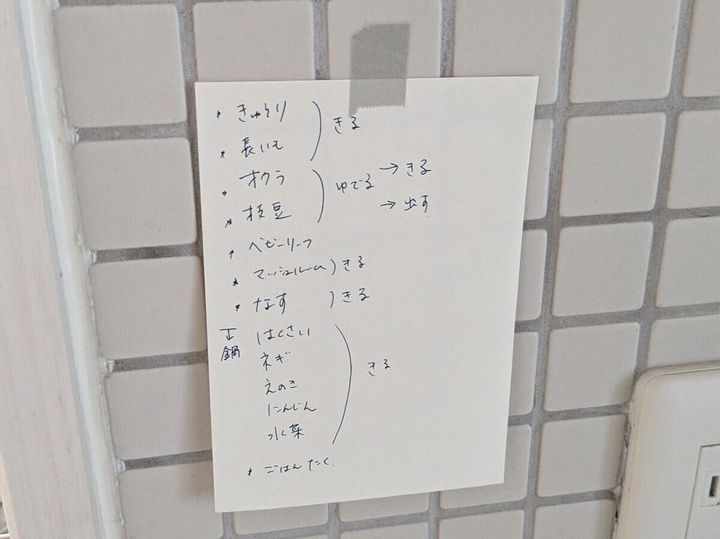 * きゅうり ) きる
* 長いも
* オクラ ) ゆでる → きる
* 枝豆 → 出す
* ベビーリーフ
* マッシュルーム ) きる
* なす ) きる
鍋 はくさい
ネギ
えのき ) きる
にんじん
水菜
* ごはんたく